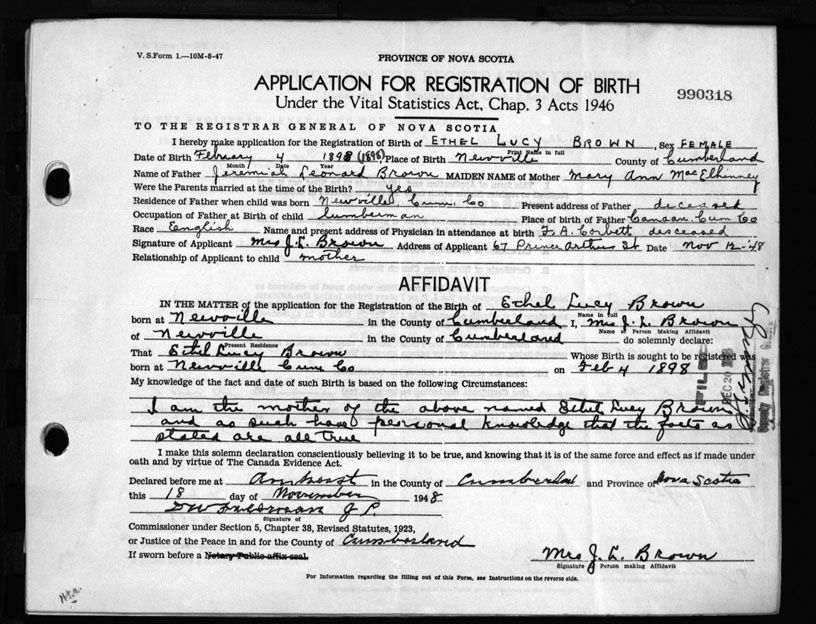 V. S. Form 1.—10M-8-47
PROVINCE OF NOVA SCOTIA
APPLICATION FOR REGISTRATION OF BIRTH
990318
Under the Vital Statistics Act, Chap. 3 Acts 1946
TO THE REGISTRAR GENERAL OF NOVA SCOTIA
I hereby make application for the Registration of Birth of ETHEL LUCY BROWN, Sex FEMALE
Print Name in full
Date of Birth February 4 1898 (1898), Place of Birth Newville County of Cumberland
Month Date Year
Name of Father Jeremiah Leonard Brown MAIDEN NAME of Mother Mary Ann MacElhinney
Were the Parents married at the time of the Birth? yes
Residence of Father when child was born Newville Cum. Co Present address of Father deceased
Occupation of Father at Birth of child lumberman Place of birth of Father Canaan, Cum Co
Race English Name and present address of Physician in attendance at birth F. A. Corbett desceased
Signature of Applicant Mrs J. L. Brown Address of Applicant 67 Prince Arthur St Date Nov 12-'48
Relationship of Applicant to child mother
AFFIDAVIT
IN THE MATTER of the application for the Registration of the Birth of Ethel Lucy Brown
Name in full
born at Newville in the County of Cumberland I, Mrs J. L. Brown
Name of Person Making Affidavit
of Newville in the County of Cumberland do solemnly declare:
Present Residence
That Ethel Lucy Brown Whose Birth is sought to be registered was
born at Newville Cum Co on Feb 4 1898
My knowledge of the fact and date of such Birth is based on the following Circumstances:
I am the mother of the above named Ethel Lucy Brown
and as such have personal knowledge that the facts as
stated are all true
FILED
DEC 20
I make this solemn declaration conscientiously believing it to be true, and knowing that it is of the same force and effect as if made under
oath and by virtue of The Canada Evidence Act.
Declared before me at Amherst in the County of Cumberland and Province of Nova Scotia
this 18 day of November 1948
J. P.
Signature of
Commissioner under Section 5, Chapter 38, Revised Statutes, 1923,
or Justice of the Peace in and for the County of Cumberland
If sworn before a Notary Public affix seal.
Mrs J. L. Brown
Signature of Person making Affidavit
For Information regarding the filling out of this Form, see Instructions on the reverse side.